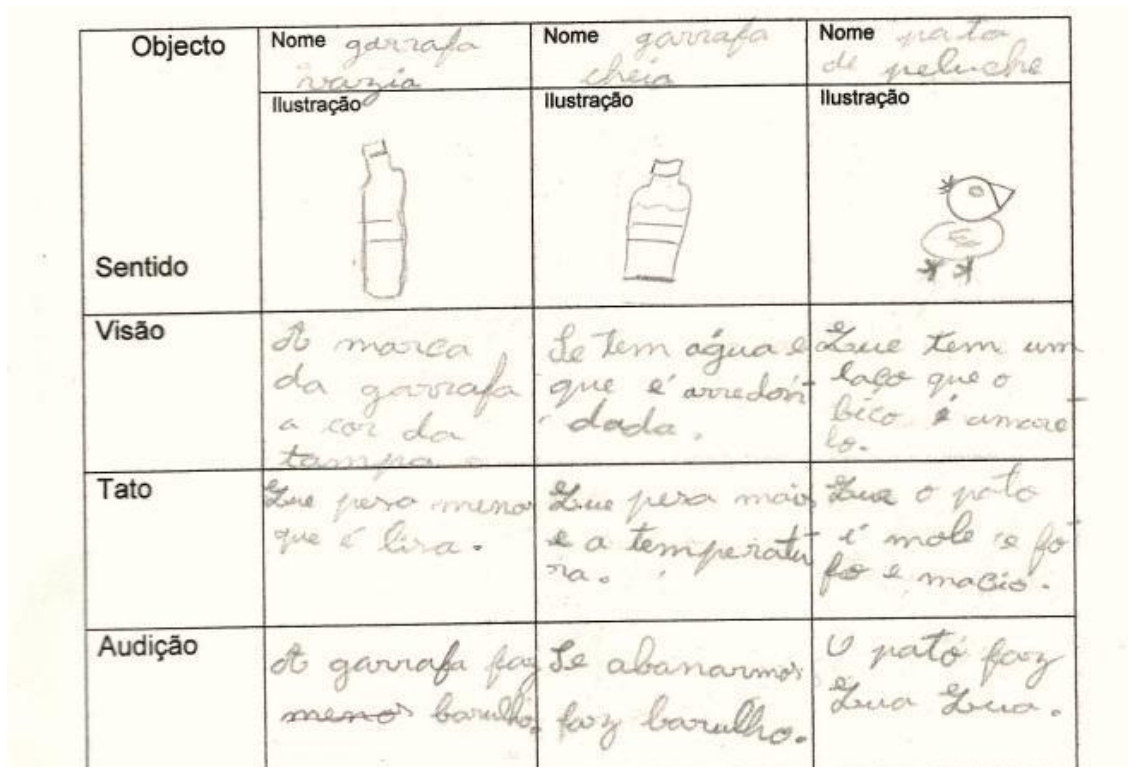 Objecto
Nome garrafa
vazia
Nome garrafa
cheia
Nome pato
de peluche
Ilustração
Ilustração
Ilustração
Sentido
Visão
A marca
da garrafa
a cor da
tampa
Se tem água e
que é arredon
dada.
Que tem um
laço que o
bico é amare
lo.
Tato
Que pesa menos
que é lisa.
Que pesa mais
e a temperatu
ra.
Que o pato
é mole e fo
fo e macio.
Audição
A garrafa faz
menos barulho.
Se abanarmos
faz barulho.
O pato faz
Qua Qua.